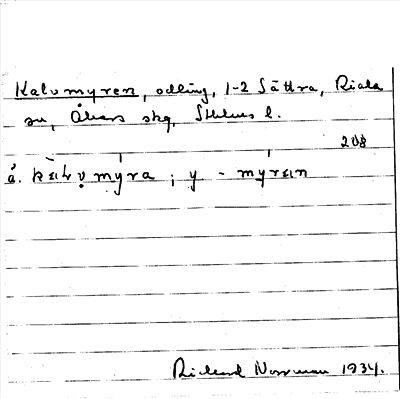 Kalvmyren, odling, 1-2 Sättra, Riala
sn, Åkers skg, Sthlms l.
208
å. myra ; y - myrɛn
Rickard Norrman 1934.